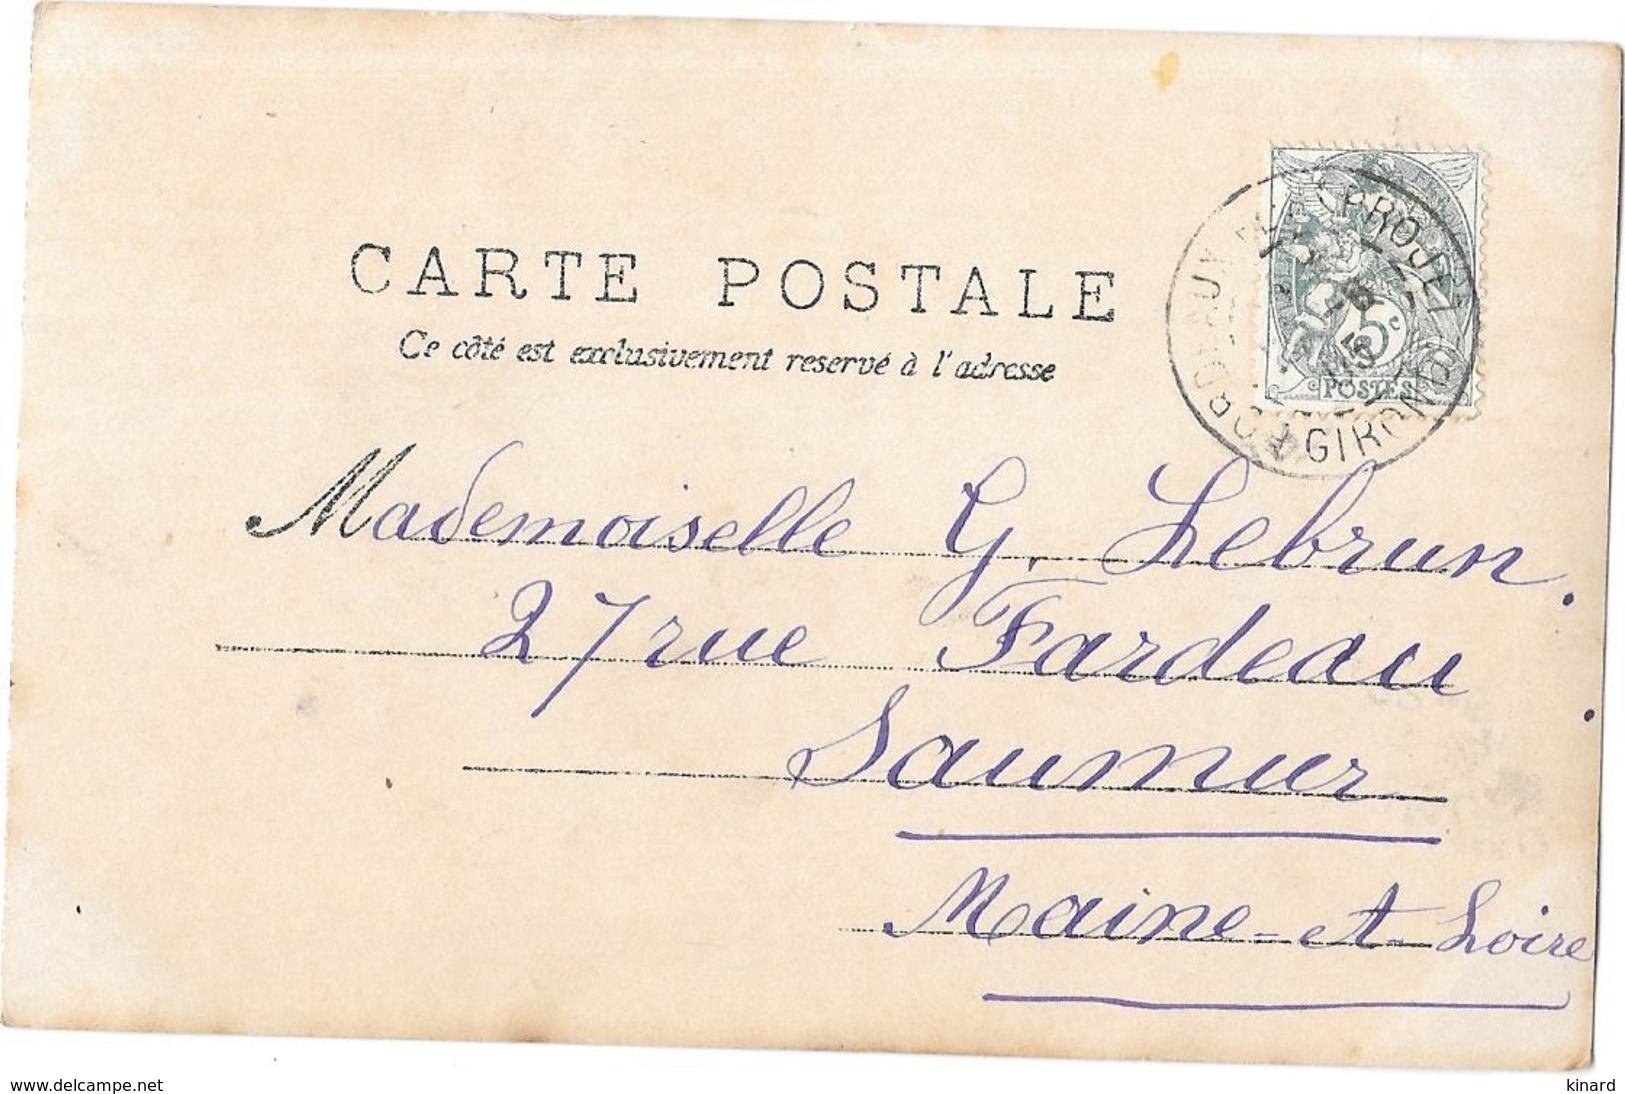 CARTE POSTALE
Ce côté est exclusivement reservé à l'adresse
5c
POSTES
GIRONDE
Mademoiselle G. Lebrun.
27 rue Fardeau
Saumur
Maine-et-Loire
www.delcampe.net
kinard